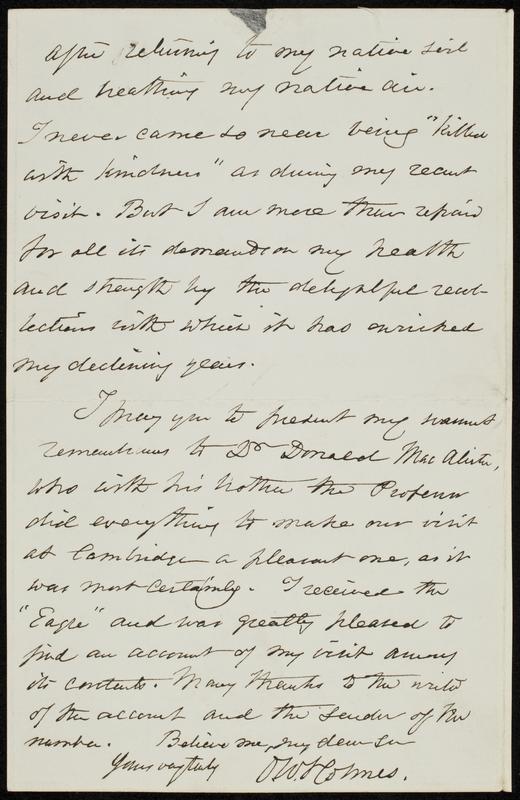 after returning to my native soil
and breathing my native air.
I never came so near being "killed
with kindness" as during my recent
visit. But I am more than repaid
for all its demands on my health
and strength by the delightful recol-
lections with which it has enriched
my declining years.
I pray you to present my warmest
remembrances to Dr Donald MacAlister,
who with his brother the Professor
did everything to make our visit
at Cambridge a pleasant one, as it
was most certainly. I received the
"Eagle" and was greatly pleased to
find an account of my visit among
its contents. Many thanks to the writer
of the account and the sender of the
number. Believe me, my dear Sir
Yours very truly
O W Holmes.